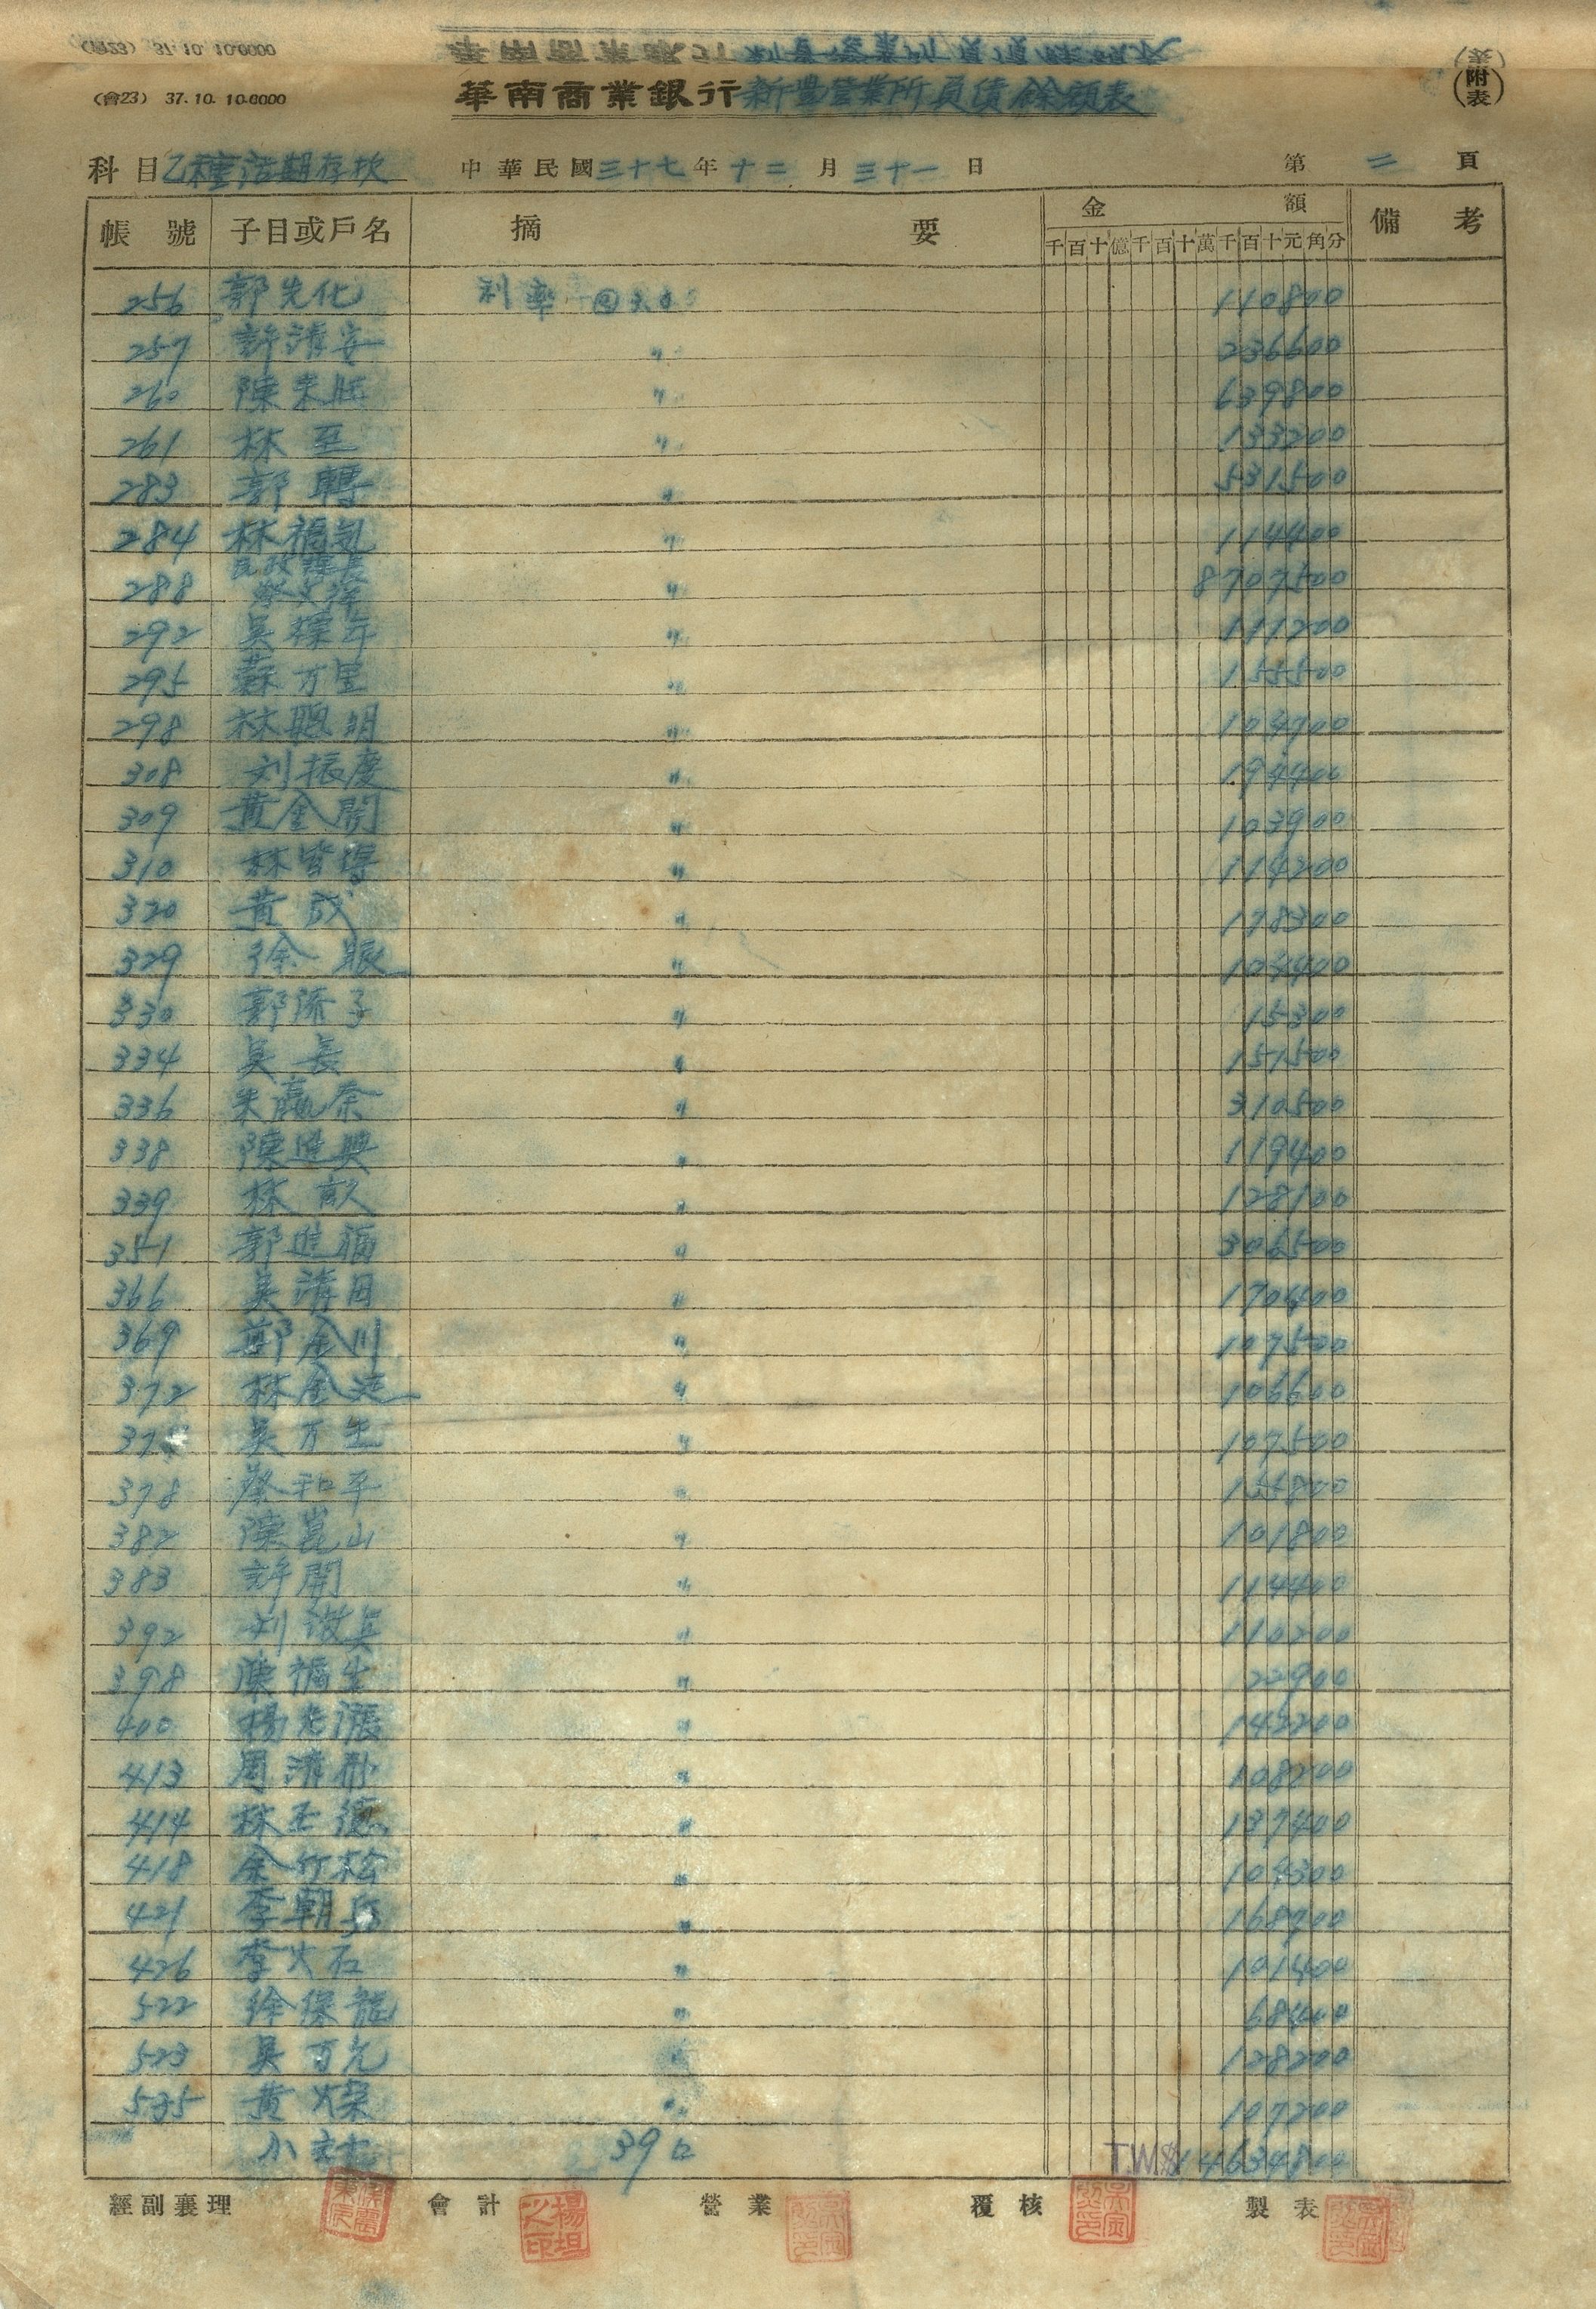 (會23) 37.10.10.6000
華南商業銀行新豐營業所負債餘額表
(附表)
科目乙種活期存款 中華民國三十七年十二月三十一日 第二頁
帳號 子目或戶名 摘要 金額 備考
千百十億千百十萬千百十元角分
256 郭先化 利率 110800
257 許清安 〃 236600
260 陳來旺 〃 639800
261 林至 〃 133200
283 郭轉 〃 531500
284 林福氣 〃 114400
288 民政課長 蔡文 〃 8707500
292 吳 年 〃 111200
295 蘇万里 〃 155500
298 林聰明 〃 104700
308 刘振慶 〃 194400
309 黃金開 〃 103900
310 林皆得 〃 114200
320 黃成 〃 178300
329 徐賑 〃 104400
330 郭添子 〃 15300
334 吳長 〃 151500
336 朱嬴奈 〃 310500
338 陳進興 〃 119400
339 林 〃 128100
351 郭進福 〃 306500
366 吳清田 〃 170400
369 鄭金川 〃 107500
372 林金 〃 106600
37 吳万生 〃 107500
378 蔡和平 〃 800
382 陳崑山 〃 101800
383 許開 〃 114400
392 刘 〃 110200
398 陳福生 〃 22900
400 楊老 〃 142200
413 周清 〃 108200
414 林丕德 〃 137400
418 余竹松 〃 104300
421 李朝 〃 168700
426 李火石 〃 101400
522 徐保龍 〃 68400
523 吳万允 〃 128200
535 黃 〃 107200
小計 39口 T.W$14634800
經副襄理 會計 楊坦之印 營業 覆核 製表